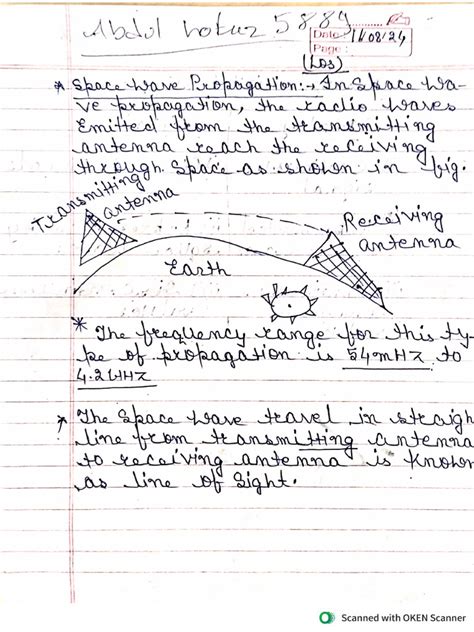 Abdul 5884
Date 11/08/24
Page:
(LOS)
* Space wave Propagation:- In Space wa-
ve propagation, the radio waves
Emitted from the transmitting
antenna reach the receiving
through space as shown in fig.
Transmitting
antenna
Receiving
antenna
Earth
* The frequency range for this ty-
pe of propagation is 54mHz to
4.2GHz
* The Space wave travel in straigh
line from transmitting antenna
to receiving antenna is known
as line of sight.
Scanned with OKEN Scanner